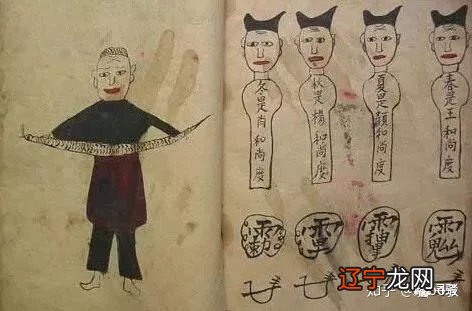 春是王和尚度
夏是顛和尚度
秋是楊和尚度
冬是肖和尚度
辽宁龙网
知乎